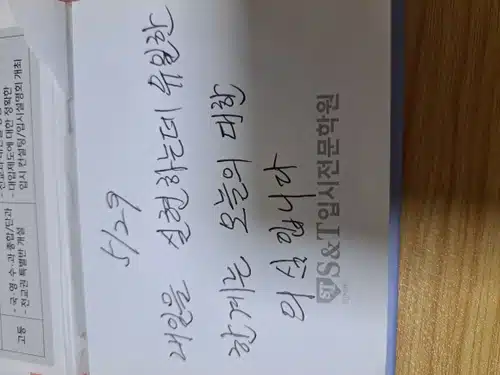 고등
- 국 영 수·과 종합/단과
- 전교권 특별반 개설
- 대입제도에 대한 정확한
입시 컨설팅/입시설명회 개최
5/29
내일을 실현하는데 유일한
한계는 오늘의 대한
의심 입니다
S&T입시전문학원